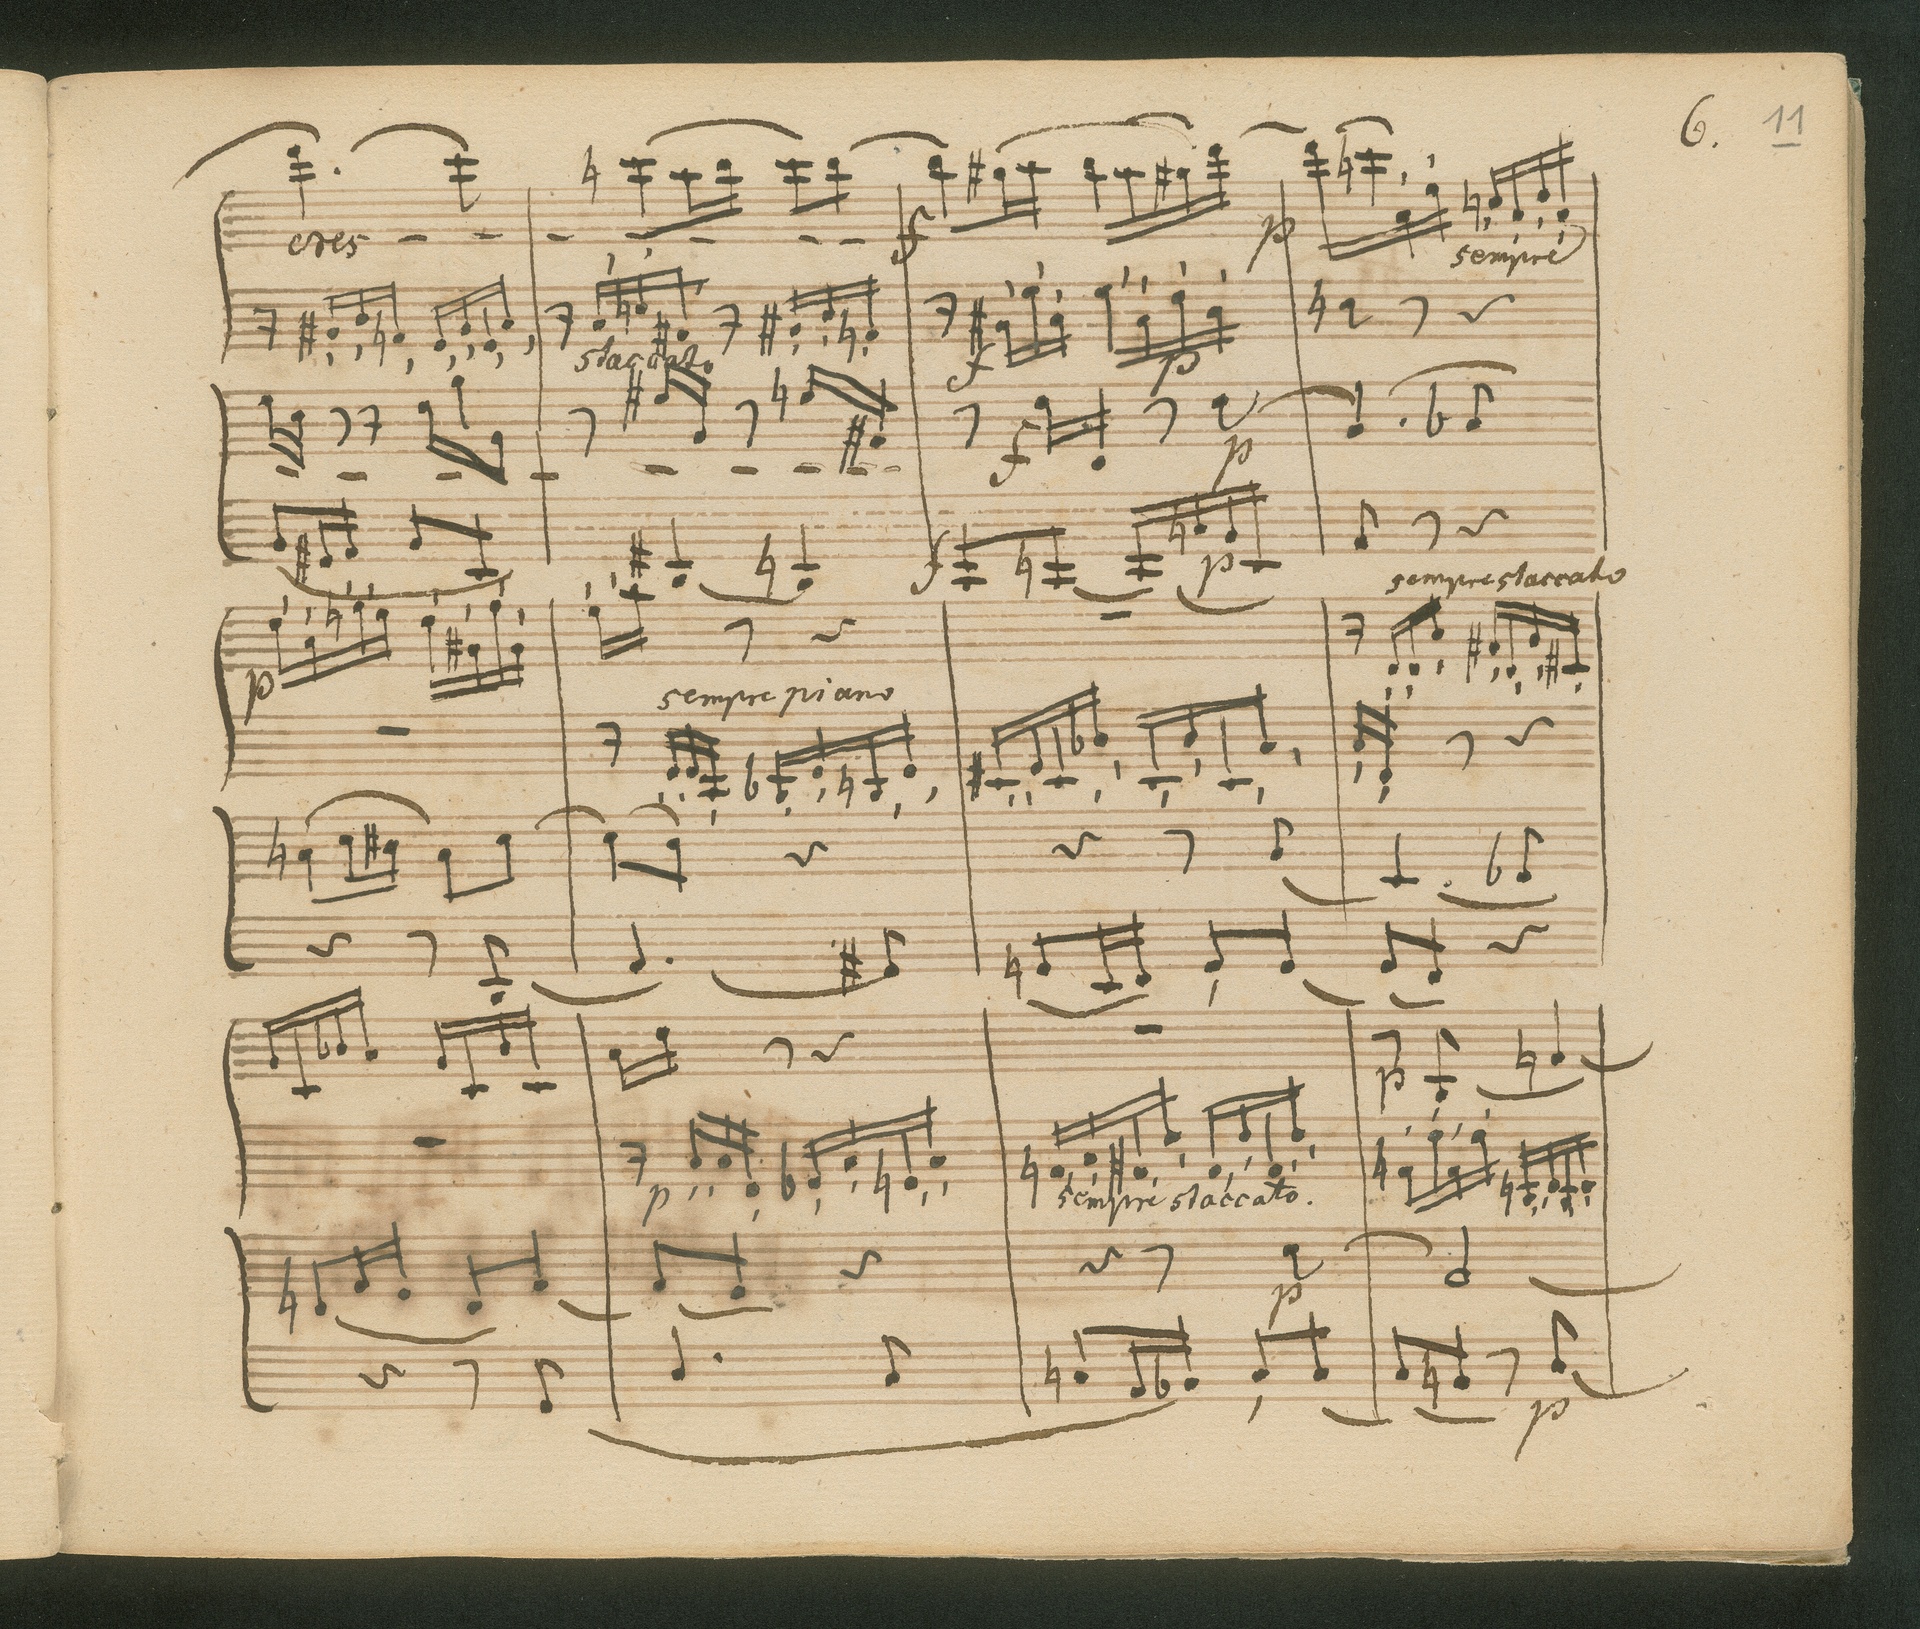 6. 11
cres
f
p
sempre
staccato
f
p
f
p
f
p
sempre staccato
p
sempre piano
p
p
sempre staccato.
p
p